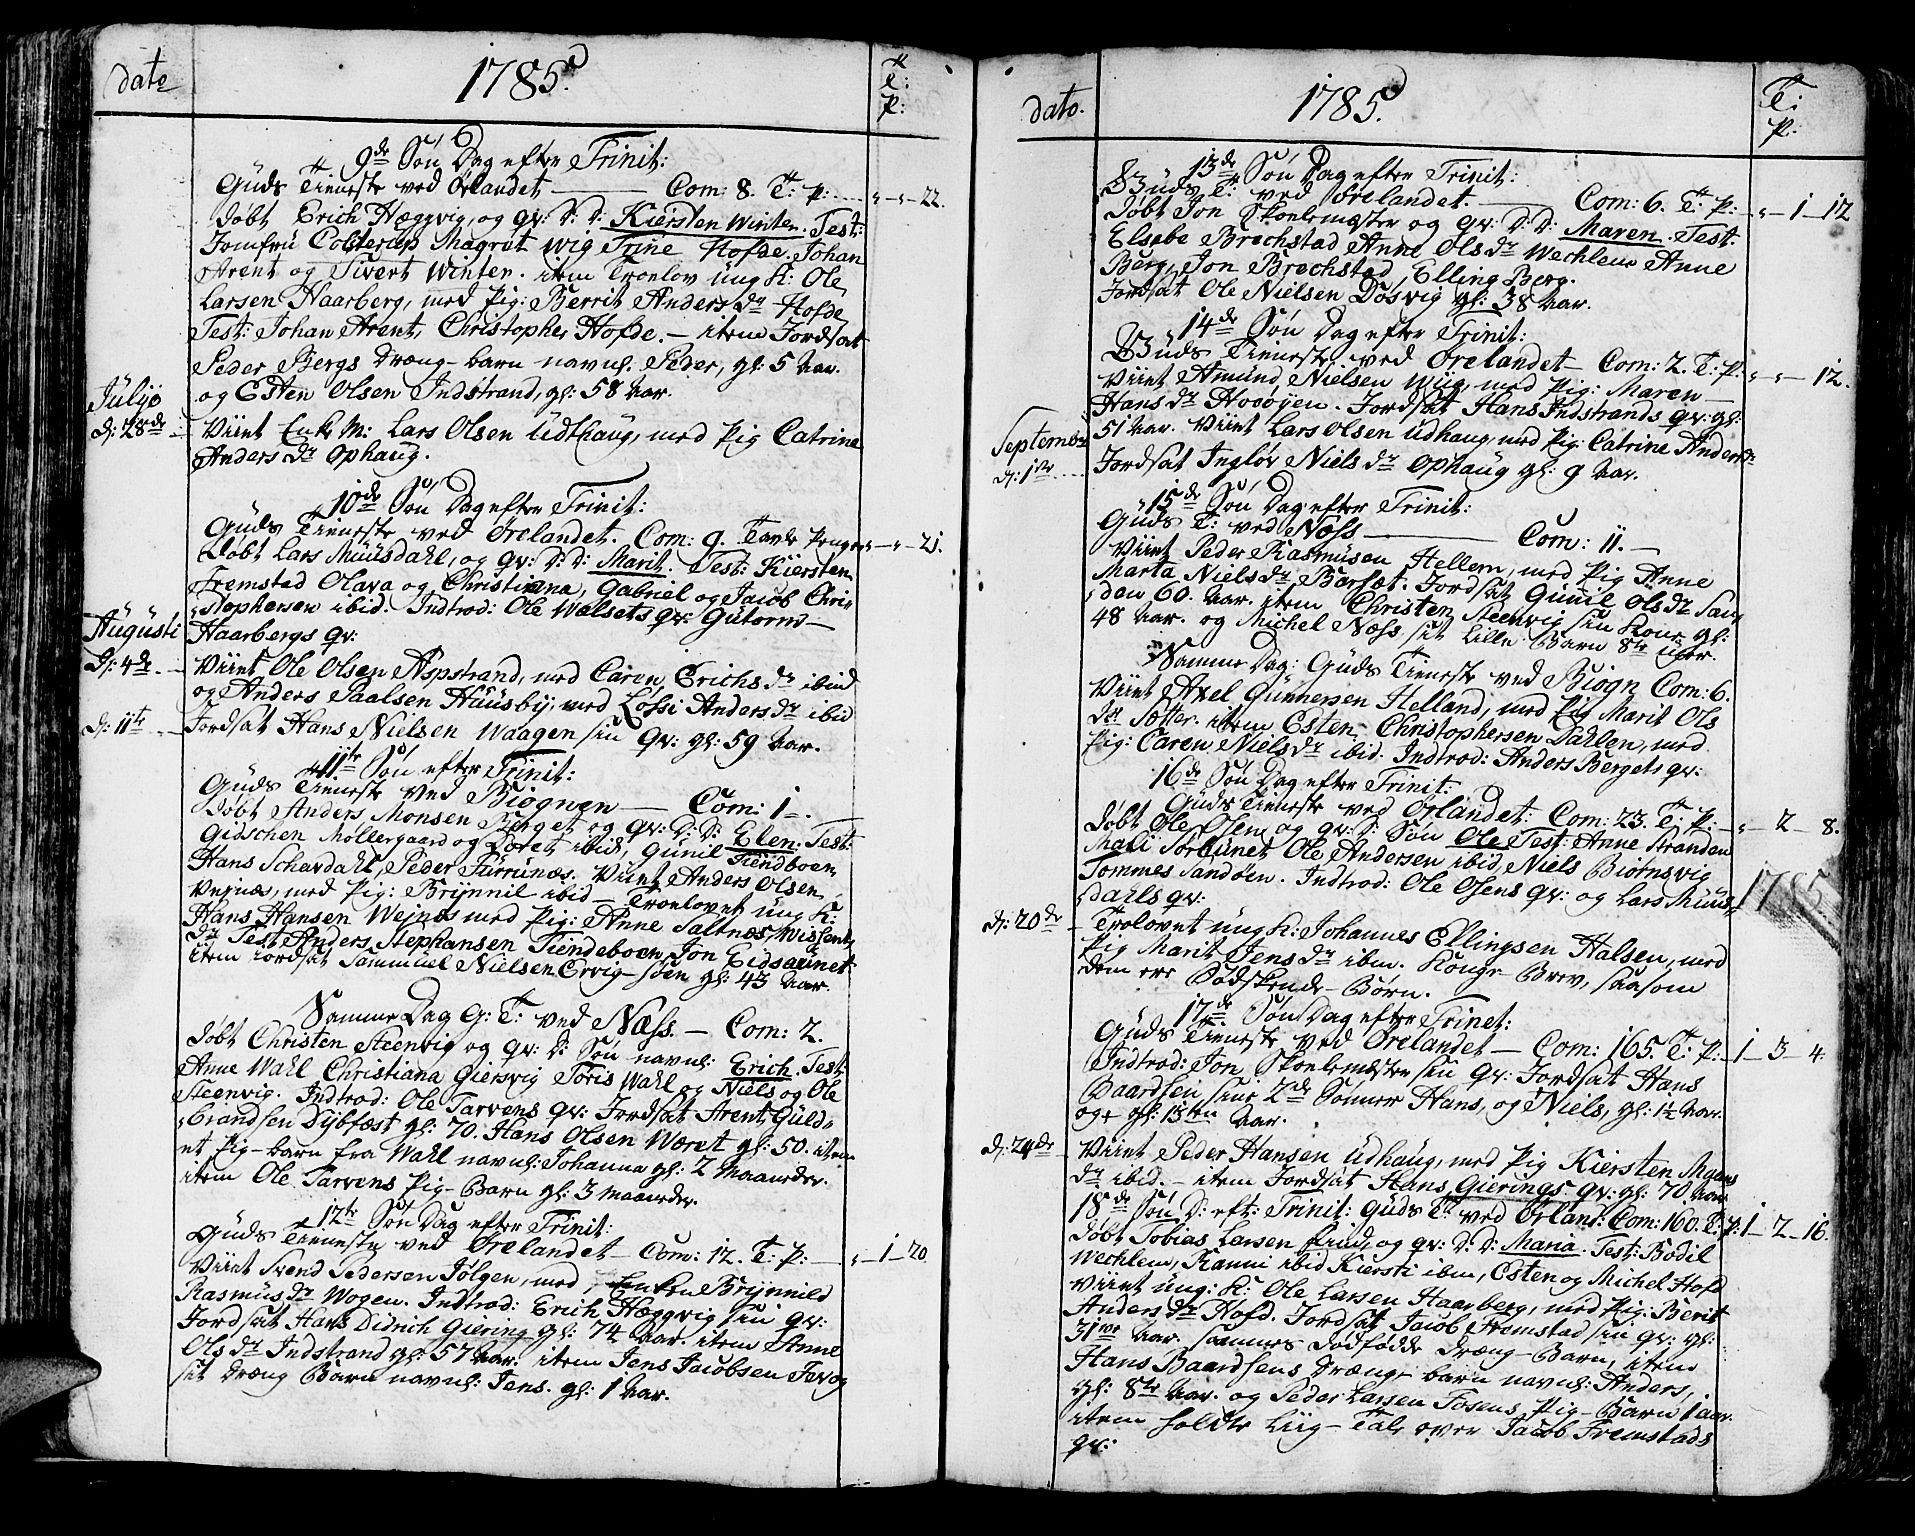 date
1785.
T:
P:
9de Søn Dag efter Trinit:
Guds Tieneste ved Ørlandet — Com: 8. T: P: „-„-22.
Døbt Erich Hæggvig, og qv: D: D: Kiersten Winter. Test:
Jomfru Colterup Magret Wig Trine Hofde. Johan
Arent og Sivert Winter. item Troelov ung K: Ole
Larsen Haarberg, med Pig: Berrit Anders dr Hofde
Test: Johan Arent, Christopher Hofde. — item Jordsat
Peder Bergs Dræng-barn navnl. Peder, gl: 5 Aar.
og Esten Olsen Indstrand, gl: 58 Aar.
Julÿo
d: 28de
Viint Enke M: Lars Olsen Udthaug, med Pig Catrine
Anders dr Ophaug.
10de Søn Dag efter Trinit:
Guds Tieneste ved Ørelandet. Com: 9. Tavle Penger „-„-21.
Døbt Lars Muusdahl, og qv: D: D: Marit. Test: Kiersten
Fremstad Olava og Christianna, Gabriel og Jacob Chri-
stophersen ibid. Indtrod: Ole Walsets qv: Gutorm
Haarbergs qv:
Augusti
d: 4de
Viint Ole Olsen Aspstrand, med Caren Erichs dr ibid
og Anders Paalsen Huusby, med Lossi Anders dr ibid
d: 11te
Jordsat Hans Nielsen Waagen sin qv: gl: 59 Aar.
11te Søn efter Trinit:
Guds Tieneste ved Biognen — Com: 1.
Døbt Anders Monsen Berget og qv: D: D: Elen. Test:
Gidschen Møllergaard og Doret ibid, Gunil Tiendboen,
Hans Schavdahl, Peder Furrunæs. Viint Anders Olsen
Vejnæs, med Pig: Brynnil ibid — Troelovet ung K:
Hans Hansen Wejnæs med Pig: Anne Saltnæs, Wissent
dr Test Anders Stephansen Tiendeboen, Jon Eidsaunet
item iordsat Sammuel Nielsen Ervig-søen gl: 43 Aar.
Samme Dag G: T: ved Næss. — Com: 2.
Døbt Christen Steenvig og qv: D: Søn navnl: Erich. Test:
Anne Wahl Christiana Giersvig Toris Wahl og Niels og Ole
Steenvig. Indtrod: Ole Tarvens qv: Jordsat Arent Guld-
brandsen Dÿbfæst gl: 70. Hans Olsen Wæret gl: 50. item
et Pig-barn fra Wahl navnl: Johanna gl: 2 Maaneder.
item Ole Tarvens Pig-Barn gl: 3 maaneder.
12te Søn Dag efter Trinit:
Guds Tieneste ved Ørelandet — Com: 12. T: P: — „-1-20.
Viint Svend Pedersen Jølgen, med Enken Brÿnnild
Rasmus dr Wogen. Indtrod: Erich Hæggvig sin qv:
Jordsat Hans Didrich Giering gl: 74 Aar. item Anne
Ols dr Indstrand gl: 57 Aar. item Jens Jacobsen
sit Dræng Barn navnl: Jens. gl: 1 Aar.
dato.
1785.
T:
P.
13de Søn Dag efter Trinit:
Guds T: ved Ørelandet — Com: 6. T: P: „-1-12
Døbt Jon Skolemester og qv: D: D: Maren. Test.
Elsebe Brechstad Anne Ols dr Wechlem Anne
Berg, Jon Brechstad, Elling Berg.
Jordsat Ole Nielsen Døsvig gl: 38 Aar.
14de Søn Dag efter Trinit:
Guds Tieneste ved Ørelandet — Com: 2. T: P: „-„-12.
Viint Amund Nielsen Wiig, med Pig: Maren
Hans dr Hovøjen. Jordsat Hans Indstrands qv: gl:
51 Aar. Viint Lars Olsen Udhaug, med Pig: Catrine Anders dr
September
d: 1te
Jordsat Ingløv Niels dr Ophaug gl: 9 Aar.
15de Søn Dag efter Trinit:
Guds T: ved Næss — Com: 11. —
Viint Peder Rasmusen Hellem, med Pig Anne
Marta Niels dr Barsæt. Jordsat Gunil Ols dr San-
den 60. Aar. item Christen Steenvig sin Kone gl:
48 Aar. og Michel Næss sit Lille Barn 8te uger.
Samme Dag: Guds Tieneste ved Biogn Com: 6.
Viint Axel Gunnersen Helland, med Pig Marit Ols
dr Sætter. item Esten Christophersen Dahlen, med
Pig: Caren Niels dr ibid. Indtrod: Anders Bergets qv:
16de Søn Dag efter Trinit:
Guds Tieneste ved Ørlandet: Com: 23. T: P. — „-2-8.
Døbt Ole Olsen og qv: D: Søn Ole Test: Anne Stranden
Mali Sorbunet Ole Andersen ibid, Niels Biørnsvig
Tommes Sandøen. Indtrod: Ole Olsens qv: og Lars Muus-
dahls qv:
1785
d: 20de
Trolovet ung K: Johannes Ellingsen Halsen, med
Pig Marit Jens dr ibm. Konge Brev, saasom
dem ere Sødskende-Børn.
17de Søn Dag efter Trinet:
Guds Tieneste ved Ørelandet — Com: 165. T: P: 1-3-4.
Indtrod: Jon Skolemester sin qv: Jordsat Hans
Baardsen sine 2de Sønner Hans, og Niels, gl: 1½ Aar.
og gl: 13ten Aar.
d: 24de
Viint Peder Hansen Udhaug, med Pig Kiersten Mgens
dr ibid. — item Jordsat Hans Gierings qv: gl: 70 Aar
18de Søn D: eft: Trinit: Guds T: ved Ørland: Com: 160. T: P: 1-2-16.
Døbt Tobias Larsen Eiud, og qv: D: D: Maria. Test: Bodil
Wechlem, Ranni ibid Kiersti ibm, Esten og Michel Hofd
Viint ung: K: Ole Larsen Haarberg, med Pig: Berit
Anders dr Hofd. Jordsat Jacob Fremstad sin qv: gl:
31te Aar. sammes Dødfødde Dræng-Barn, item
Hans Baardsens Dræng barn navnl: Anders,
gl: 8te Aar. og Peder Larsen Fosens Pig-Barn 1 aar.
item holdte Liig-Tale over Jacob Fremstads
qv: